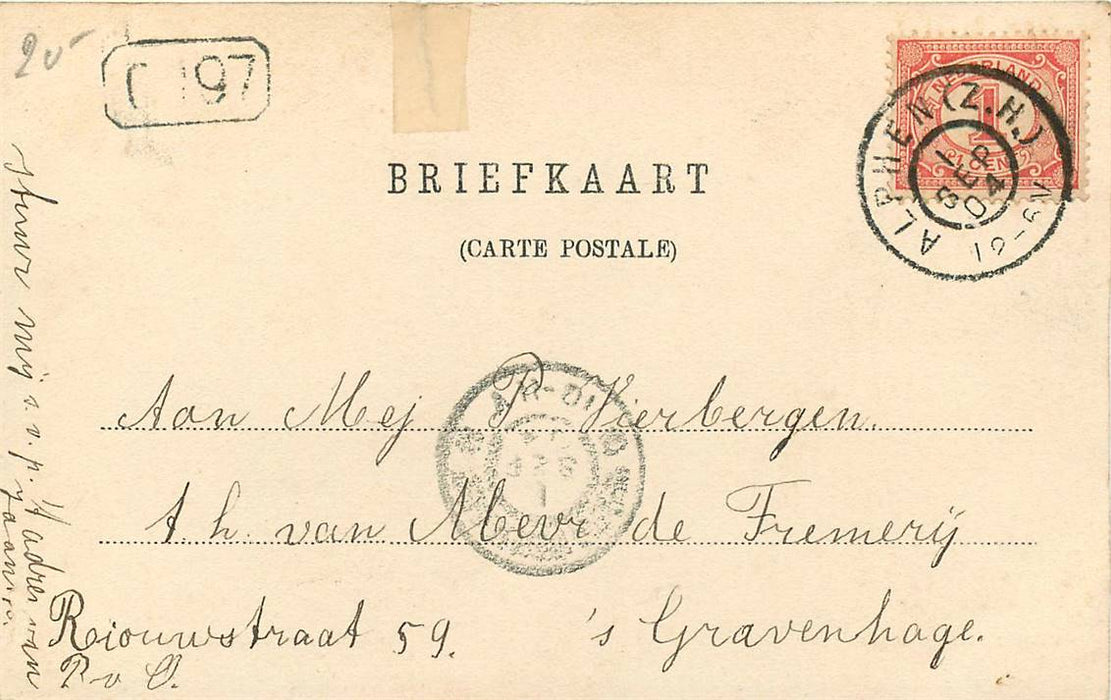 20
197
BRIEFKAART
(CARTE POSTALE)
NEDERLAND
1
CENT
ALPHEN (Z.H.)
1
SEP
04
Aan Mej P. Vierbergen.
t. h. van Mevr de Fremerij
Riouwstraat 59. 's Gravenhage.
P. v O.
stuur mij s. v. p. 't adres van